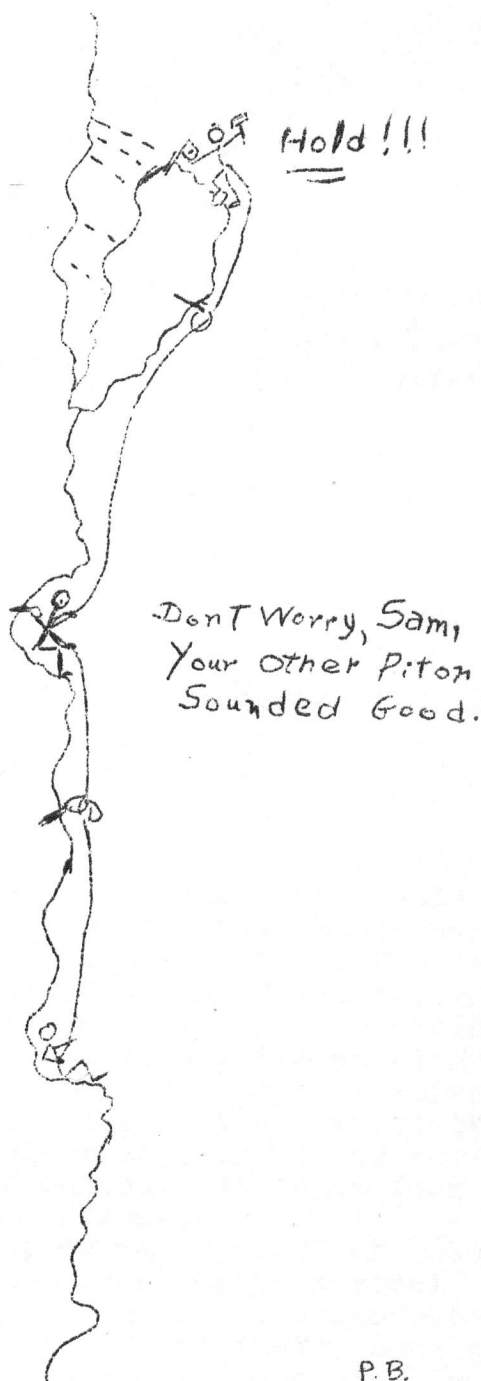 Hold!!!
Don't Worry, Sam,
Your Other Piton
Sounded Good.
P.B.